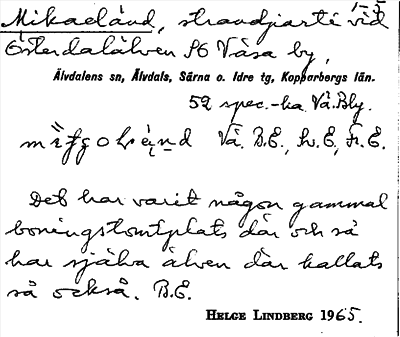 Mikaeländ, strandparti vid 1-5
Österdalälven SO Våsa by,
Älvdalens sn, Älvdals, Särna o. Idre tg, Kopparbergs län.
52 spec.-ka Vå. Bly.
Vå. B.E., L.E., F.E.
Det har varit någon gammal
boningstomtplats där och så
har själva älven där kallats
så också. B.E.
HELGE LINDBERG 1965.